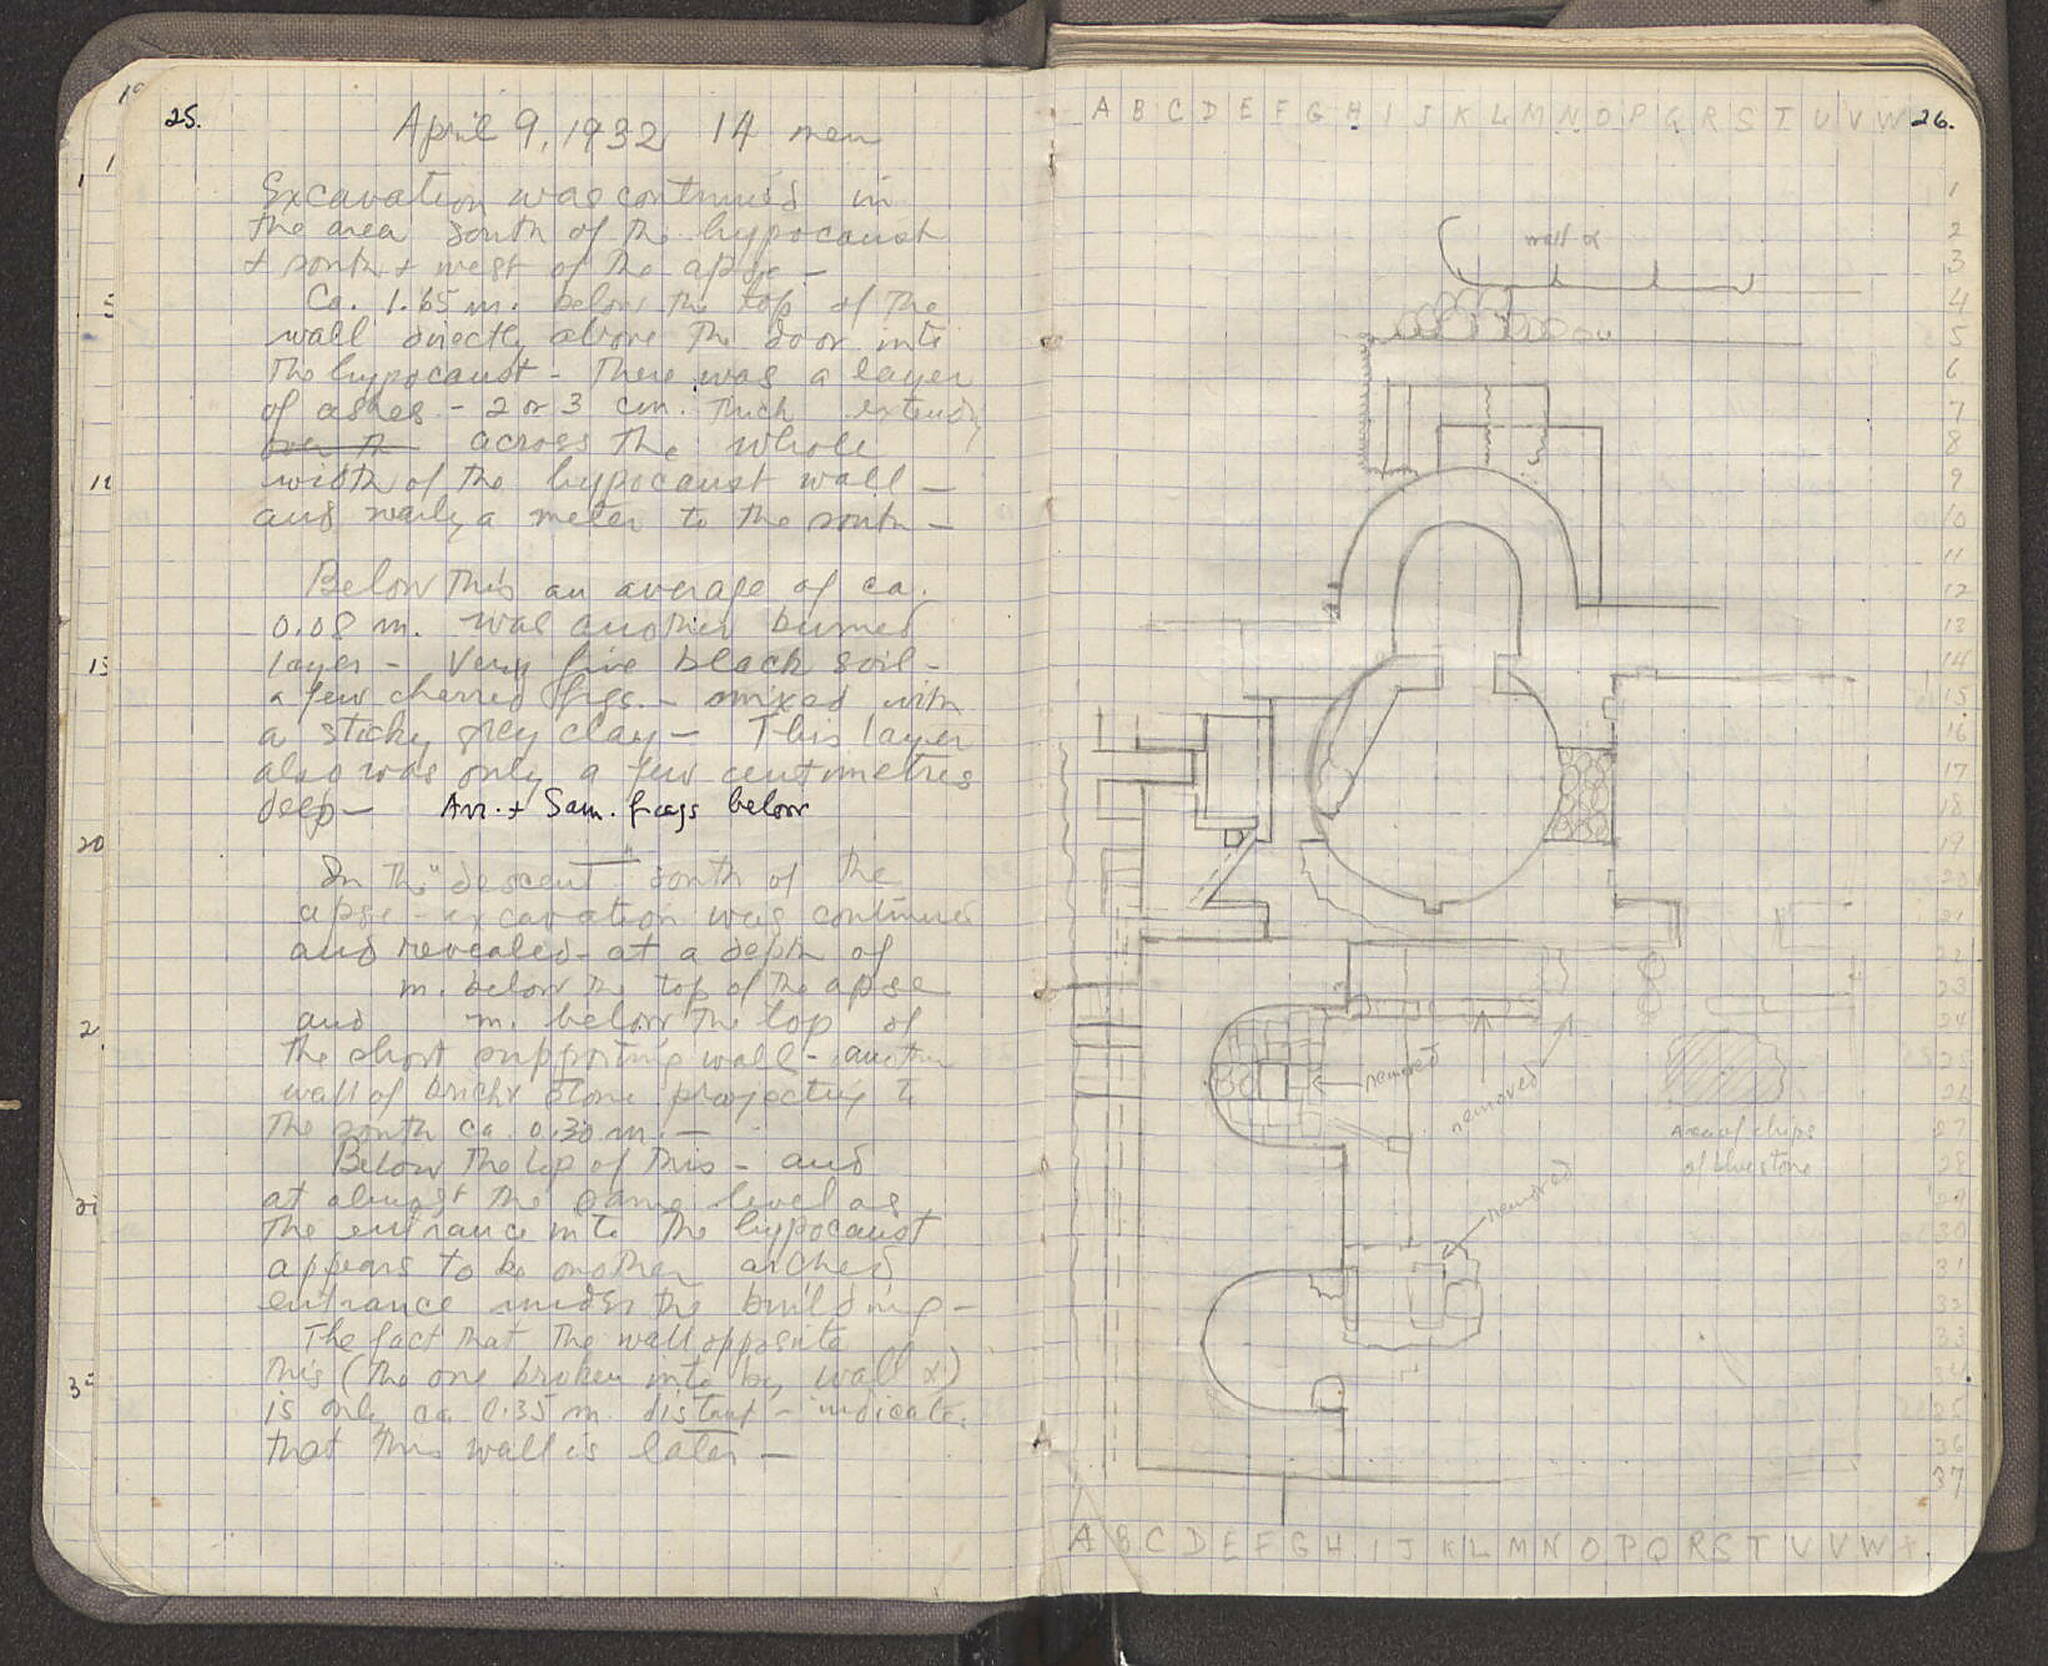 25.
April 9, 1932 14 men
Excavation was continued in
the area south of the hypocaust
+ south + west of the apse -
Ca. 1.65 m. below the top of the
wall directly above the door into
the hypocaust - There was a layer
of ashes - 2 or 3 cm. thick extendg
over th across the whole
width of the hypocaust wall -
and nearly a meter to the south -
Below this an average of ca.
0.08 m. was another burned
layer - Very fine black soil -
a few charred figs. - mixed with
a sticky grey clay - This layer
also was only a few centimetres
deep - Arr. + Sam. frags below
In the "descent" south of the
apse - excavation was continued
and revealed - at a depth of
m. below the top of the apse
and m. below the top of
the short supporting wall - another
wall of brick + stone projecting to
the south ca. 0.30 m. -
Below the top of this - and
at almost the same level as
the entrance into the hypocaust
appears to be another arched
entrance under the building -
The fact that the wall opposite
this (the one broken into by wall α)
is only ca 0.35 m distant - indicates
that this wall is later -
A B C D E F G H I J K L M N O P Q R S T U V W 26.
wall α
1
2
3
4
5
6
7
8
9
10
11
12
13
14
15
16
17
18
19
20
21
22
23
24
25
26
27
28
29
30
31
32
33
34
35
36
37
removed
removed
area of chips
of bluestone
removed
A B C D E F G H I J K L M N O P Q R S T U V W X